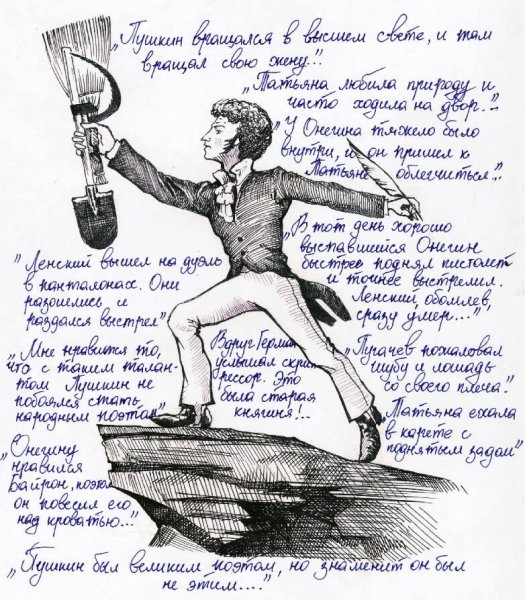 „Пушкин вращался в высшем свете, и там
вращал свою жену...”
„Татьяна любила природу и
часто ходила на двор..”
„У Онегина тяжело было
внутри, и он пришел к
Татьяне облегчиться..”
„В тот день хорошо
выспавшийся Онегин
быстрее поднял пистолет
и точнее выстрелил.
Ленский, обомлев,
сразу умер...”
"Ленский вышел на дуэль
в панталонах. Они
разошлись и
раздался выстрел"
„Мне нравится то,
что с таким талан-
том Пушкин не
побоялся стать
народным поэтом"
Вдруг Герман
услышал скрип
рессор. Это
была старая
княгиня!..
„Пугачев пожаловал
шубу и лошадь
со своего плеча"
„Татьяна ехала
в карете с
поднятым задом"
„Онегину
нравился
Байрон, поэтому
он повесил его
над кроватью..."
„Пушкин был великим поэтом, но знаменит он был
не этим...."